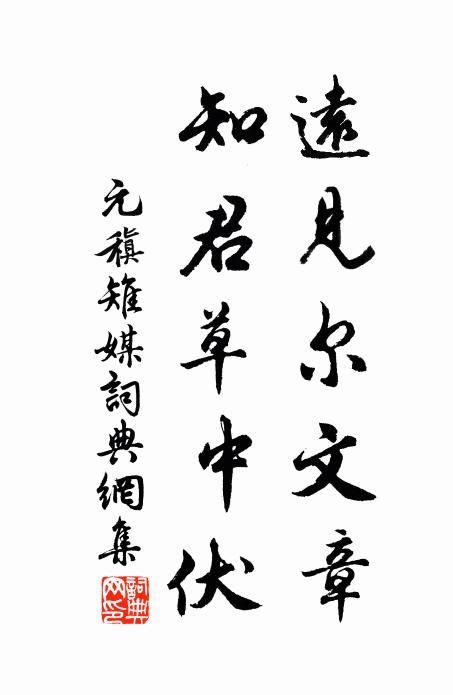 遠見尔文章
知君草中伏
元稹雉媒詞典網集
詞典网印